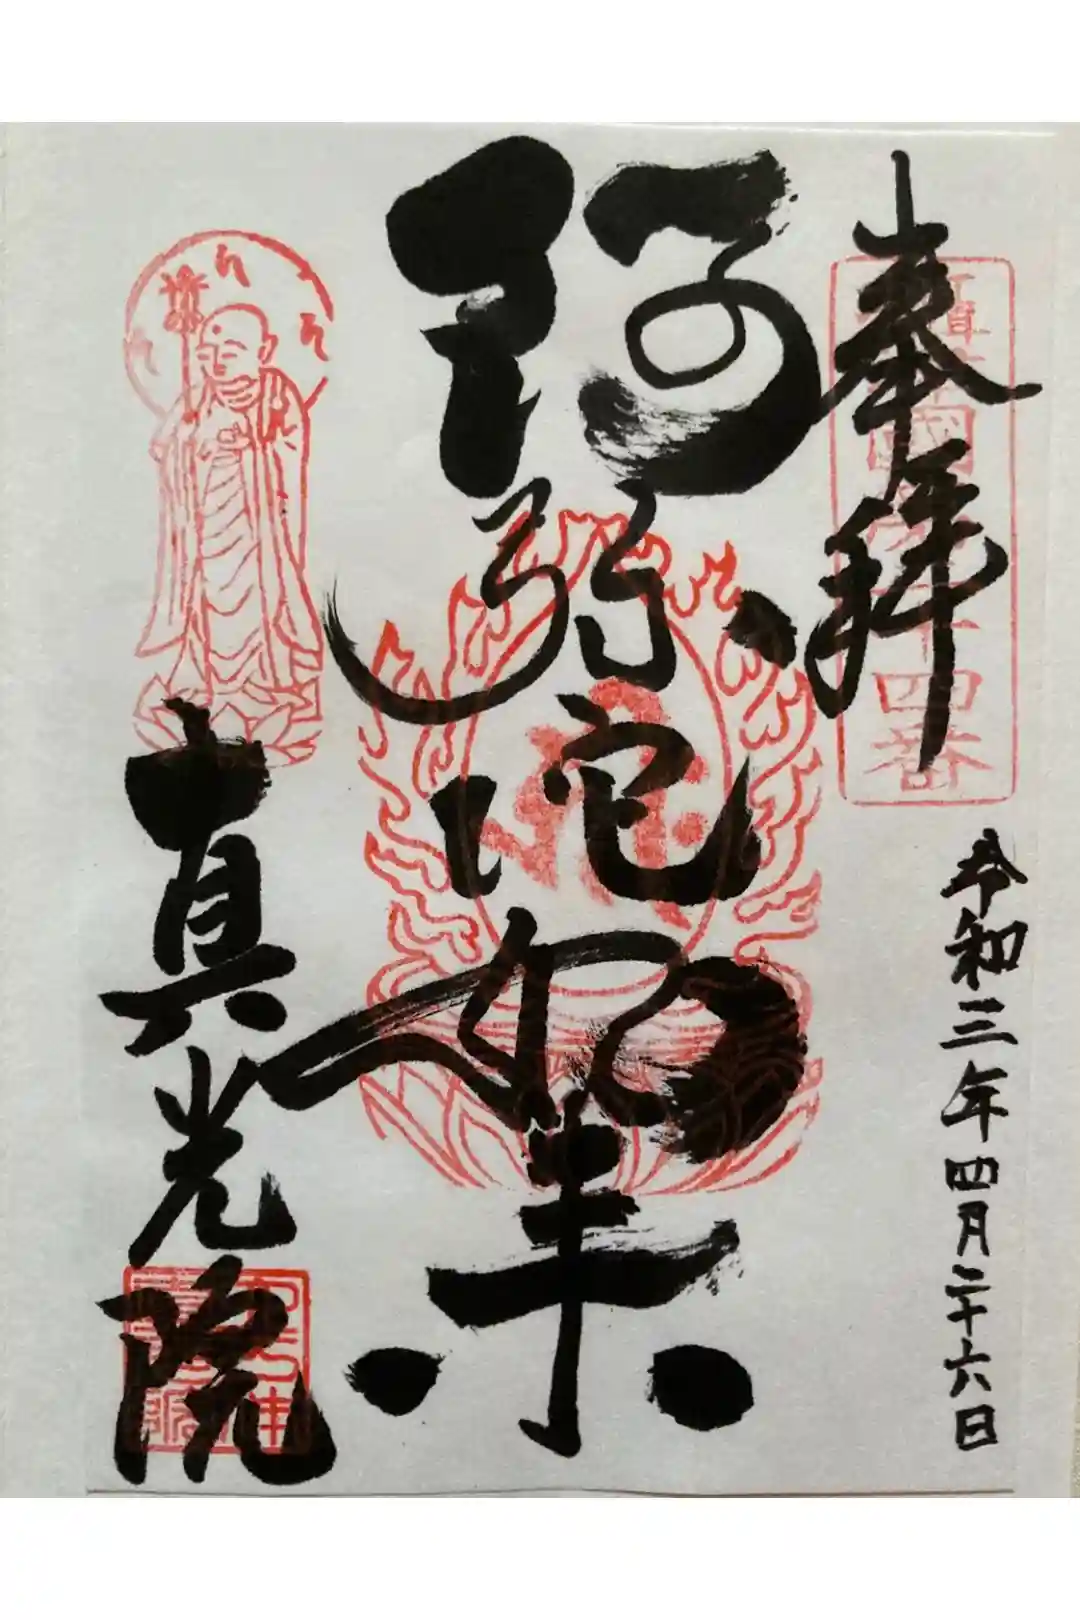 奉拝
令和三年四月二十六日
阿弥陀如来
真光院
四番